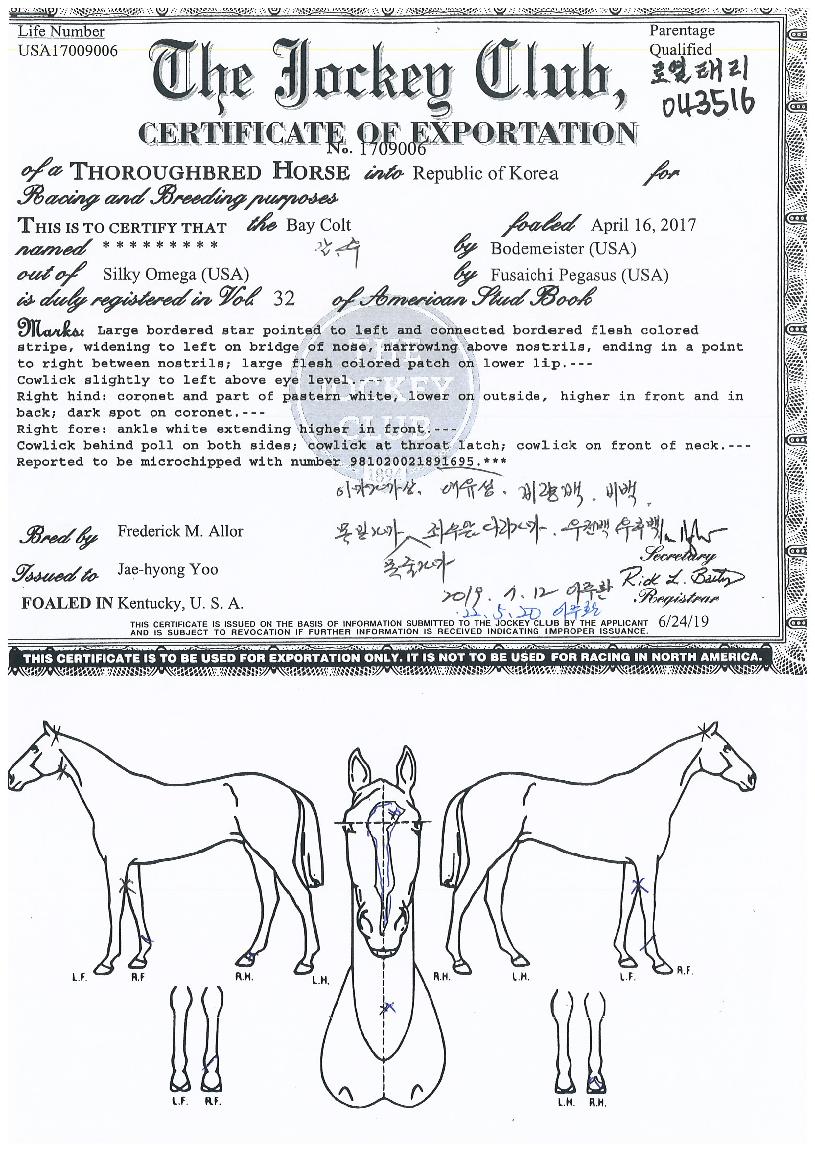 Life Number
USA17009006
The Jockey Club,
Parentage
Qualified
로열태리
043516
CERTIFICATE OF EXPORTATION
No. 1709006
of a THOROUGHBRED HORSE into Republic of Korea for
Racing and Breeding purposes
THIS IS TO CERTIFY THAT the Bay Colt foaled April 16, 2017
named * * * * * * * * * by Bodemeister (USA)
out of Silky Omega (USA) by Fusaichi Pegasus (USA)
is duly registered in Vol. 32 of American Stud Book
Marks: Large bordered star pointed to left and connected bordered flesh colored
stripe, widening to left on bridge of nose, narrowing above nostrils, ending in a point
to right between nostrils; large flesh colored patch on lower lip.---
Cowlick slightly to left above eye level.---
Right hind: coronet and part of pastern white, lower on outside, higher in front and in
back; dark spot on coronet.---
Right fore: ankle white extending higher in front.---
Cowlick behind poll on both sides; cowlick at throat latch; cowlick on front of neck.---
Reported to be microchipped with number 981020021891695.***
THE JOCKEY CLUB
1894
Bred by Frederick M. Allor
Secretary
Issued to Jae-hyong Yoo
Rick L. Bailey
Registrar
FOALED IN Kentucky, U. S. A.
2019. 7. 12 이주환
22. 5. 20 이주환
THIS CERTIFICATE IS ISSUED ON THE BASIS OF INFORMATION SUBMITTED TO THE JOCKEY CLUB BY THE APPLICANT
AND IS SUBJECT TO REVOCATION IF FURTHER INFORMATION IS RECEIVED INDICATING IMPROPER ISSUANCE.
6/24/19
THIS CERTIFICATE IS TO BE USED FOR EXPORTATION ONLY. IT IS NOT TO BE USED FOR RACING IN NORTH AMERICA.
L.F. R.F R.H. L.H. R.H. L.H. L.F. R.F.
L.F. R.F. L.H. R.H.